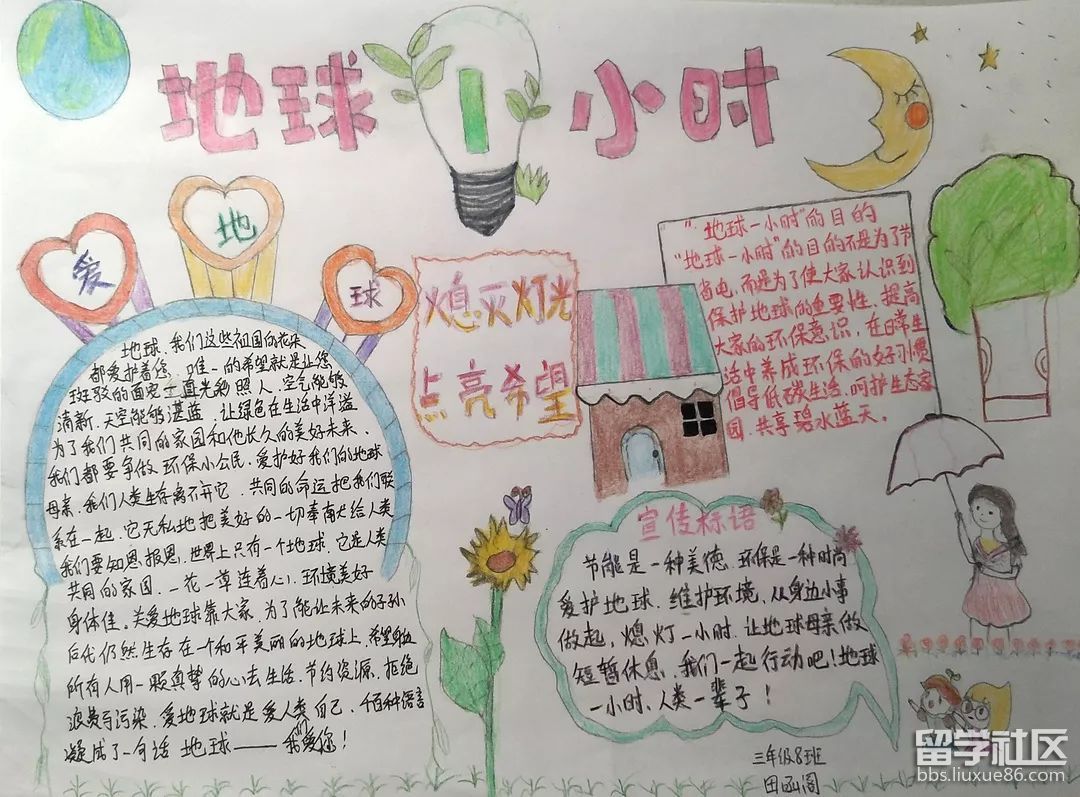 地球1小时
爱
地
球
熄灭灯光
点亮希望
地球、我们这些祖国的花朵
都爱护着您，唯一的希望就是让您
斑驳的面容一直光彩照人，空气能够
清新、天空能够湛蓝，让绿色在生活中洋溢
为了我们共同的家园和他长久的美好未来、
我们都要争做环保小公民、爱护好我们的地球
母亲、我们人类生存离不开它，共同的命运把我们联
系在一起、它无私地把美好的一切奉献给人类
我们要知恩报恩、世界上只有一个地球、它是人类
共同的家园、一花一草连着人心、环境美好
身体佳。关爱地球靠大家，为了能让未来的子孙
后代仍然生存在一个和平美丽的地球上，希望身边
所有人用一颗真挚的心去生活、节约资源、拒绝
浪费与污染，爱地球就是爱人类自己、千百种语言
凝成了一句话 地球——我们爱您！
"地球一小时"的目的
"地球一小时"的目的不是为了节
省电，而是为了使大家认识到
保护地球的重要性，提高
大家的环保意识，在日常生
活中养成环保的好习惯
倡导低碳生活，呵护生态家
园，共享碧水蓝天。
宣传标语
节能是一种美德，环保是一种时尚
爱护地球、维护环境、从身边小事
做起，熄灯一小时，让地球母亲做
短暂休息，我们一起行动吧！地球
一小时、人类一辈子！
三年级8班
田函阁
留学社区
bbs.liuxue86.com